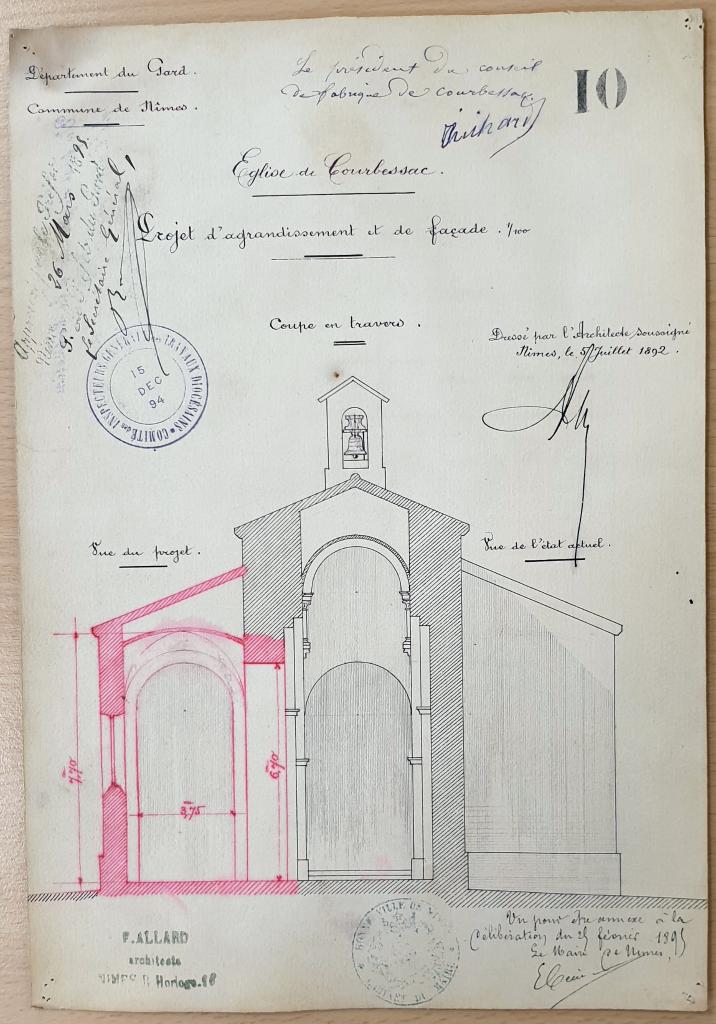 Département du Gard.
Commune de Nîmes.
Le président du conseil
de fabrique de Courbessac
10
Eglise de Courbessac.
Projet d'agrandissement et de façade. 1/100
26 Mars 1895
Le Secrétaire Général,
COMITÉ des INSPECTEURS GÉNÉRAUX des TRAVAUX DIOCÉSAINS
15
DEC
94
Coupe en travers.
Dressé par l'Architecte soussigné
Nîmes, le 5 Juillet 1892.
Vue du projet.
Vue de l'état actuel.
7,70
3,75
6,70
F. ALLARD
architecte
NIMES R Horloge
VILLE DE
Vu pour être annexé à la
délibération du 25 février 1895
Le Maire de Nîmes,